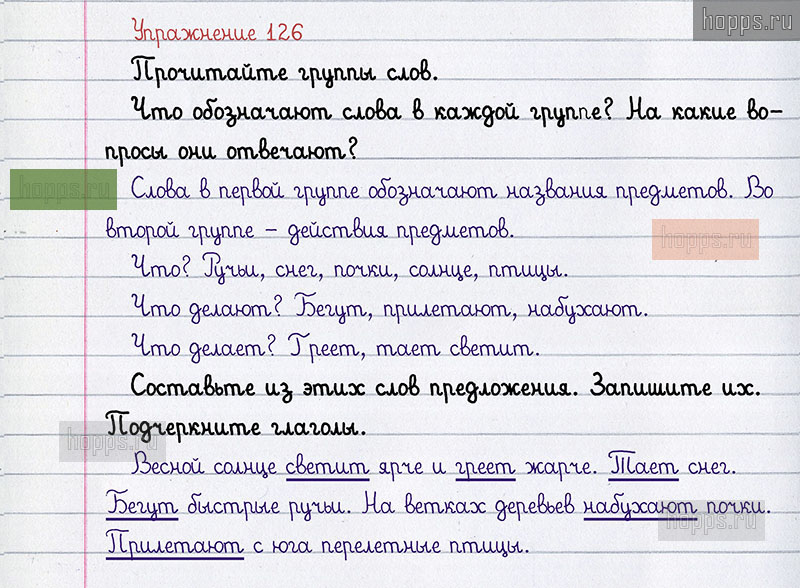 hopps.ru
Упражнение 126
Прочитайте группы слов.
Что обозначают слова в каждой группе? На какие во-
просы они отвечают?
hopps.ru
Слова в первой группе обозначают названия предметов. Во
второй группе – действия предметов.
hopps.ru
Что? Ручьи, снег, почки, солнце, птицы.
Что делают? Бегут, прилетают, набухают.
Что делает? Греет, тает светит.
Составьте из этих слов предложения. Запишите их.
Подчеркните глаголы.
hopps.ru
Весной солнце светит ярче и греет жарче. Тает снег.
Бегут быстрые ручьи. На ветках деревьев набухают почки.
hopps.ru
Прилетают с юга перелетные птицы.